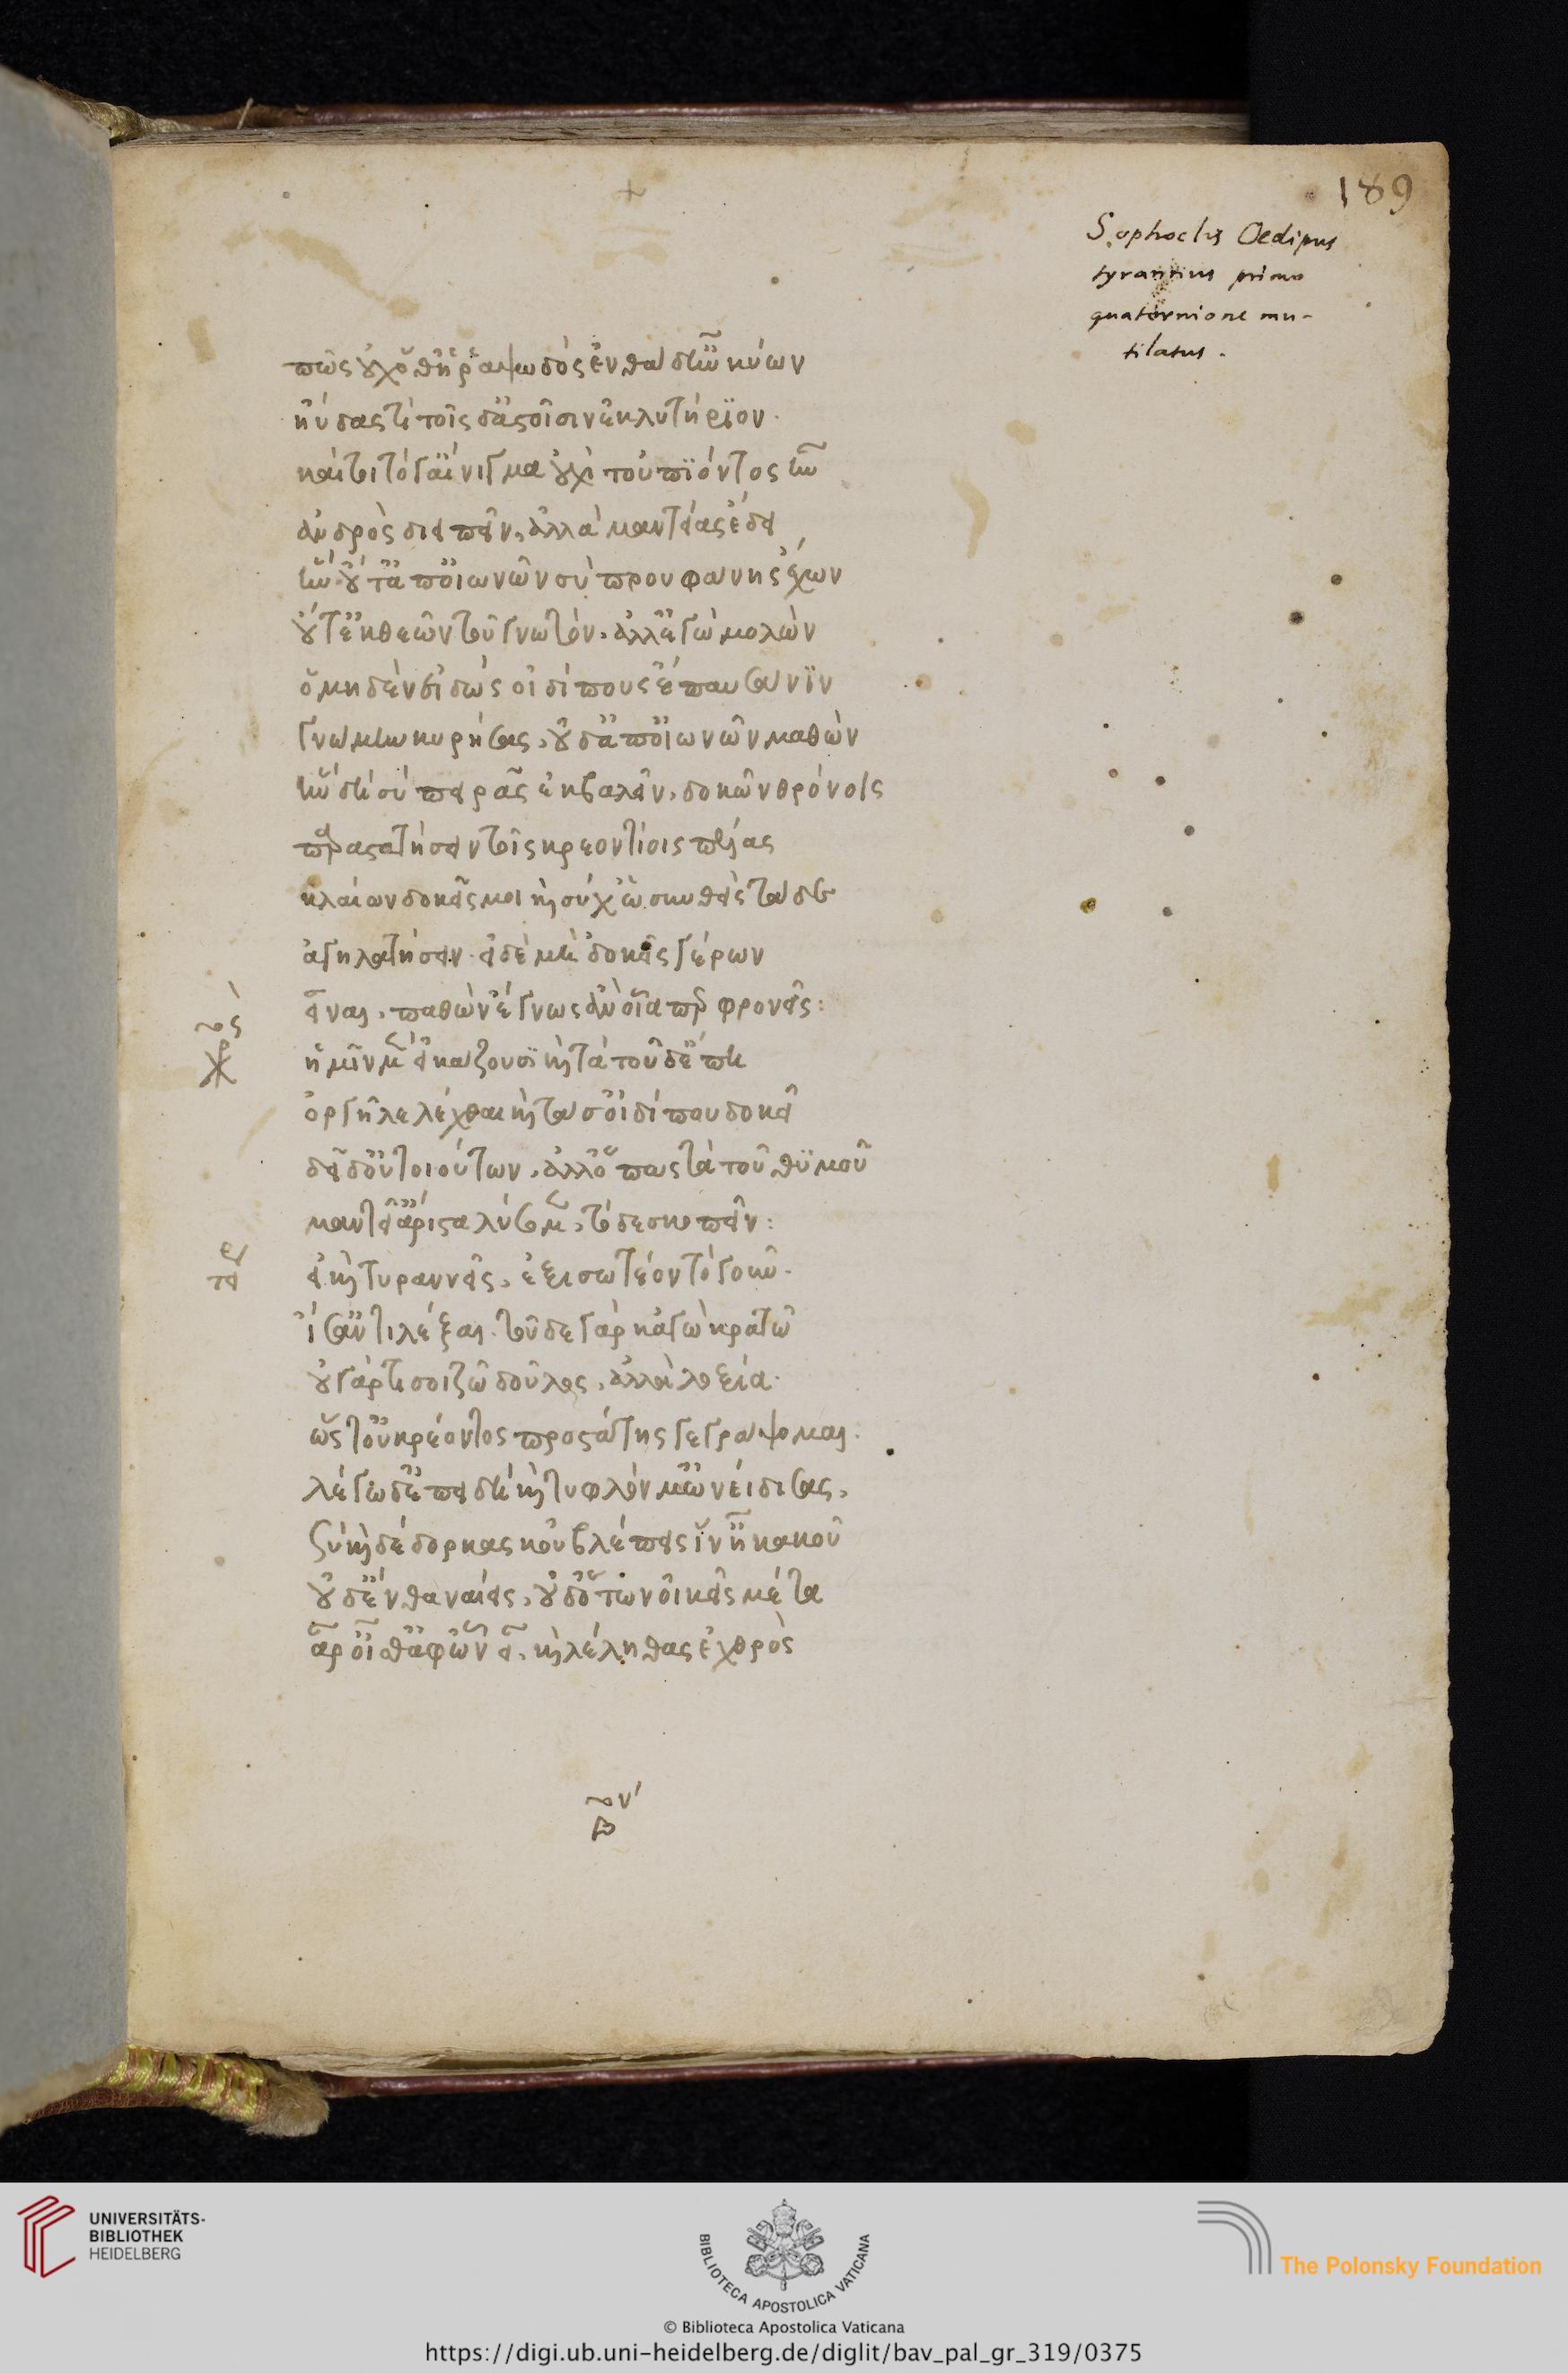 189
Sophoclis Oedipus
tyrannus primo
quaternione mu-
tilatus.
πῶς οὐχ ὅθ' ἡ ῥαψωδὸς ἐνθάδ' ἦν κύων
ηὔδας τί τοῖς δ' ἀστοῖσιν ἐκλυτήριον.
καί τοι τό γ' αἴνιγμα οὐχὶ τοὐπιόντος ἦν
ἀνδρὸς διειπεῖν, ἀλλὰ μαντείας ἔδει
ἣν οὔτ' ἀπ' οἰωνῶν σὺ προυφάνης ἔχων
οὔτ' ἐκ θεῶν του γνωτόν. ἀλλ' ἐγὼ μολὼν
ὁ μηδὲν εἰδὼς οἰδίπους ἔπαυσά νιν
γνώμη κυρήσας, οὐδ' ἀπ' οἰωνῶν μαθών
ὃν δὴ σὺ πειρᾶς ἐκβαλεῖν, δοκῶν θρόνοις
παραστατήσειν τοῖς κρεοντίοις πέλας
κλαίων δοκεῖς μοι καὶ σὺ χ' ὡ συνθεὶς τάδε
ἀγηλατήσειν. εἰ δὲ μὴ 'δόκεις γέρων
εἶναι, παθὼν ἔγνως ἂν οἷά περ φρονεῖς:
χορός
ἡμῖν μὲν εἰκάζουσι καὶ τὰ τοῦδ' ἔπη
ὀργῇ λελέχθαι καὶ τὰ σ' οἰδίπου δοκεῖ
δεῖ δ' οὐ τοιούτων, ἀλλ' ὅπως τὰ τοῦ θυμοῦ
μαντεῖ' ἄριστα λύσομεν, τόδε σκοπεῖν:
τει
εἰ καὶ τυραννεῖς, ἐξισωτέον τὸ γοῦν.
ἴσ' ἀντιλέξαι. τοῦδε γὰρ κἀγὼ κρατῶ
οὐ γάρ τι σοὶ ζῶ δοῦλος, ἀλλὰ λοξία.
ὥστ' οὐ κρέοντος προστάτης γεγράψομαι.
λέγω δ' ἐπειδὴ καὶ τυφλόν μ' ὠνείδισας,
σὺ καὶ δέδορκας κοὐ βλέπεις ἵν' ἦ κακοῦ
οὐδ' ἔνθα ναίεις, οὐδ' ὅτων οἰκεῖς μέτα
ἆρ' οἶσθ' ἀφ' ὧν εἶ, καὶ λέληθας ἐχθρὸς
UNIVERSITÄTS-
BIBLIOTHEK
HEIDELBERG
BIBLIOTECA APOSTOLICA VATICANA
The Polonsky Foundation
© Biblioteca Apostolica Vaticana
https://digi.ub.uni-heidelberg.de/diglit/bav_pal_gr_319/0375